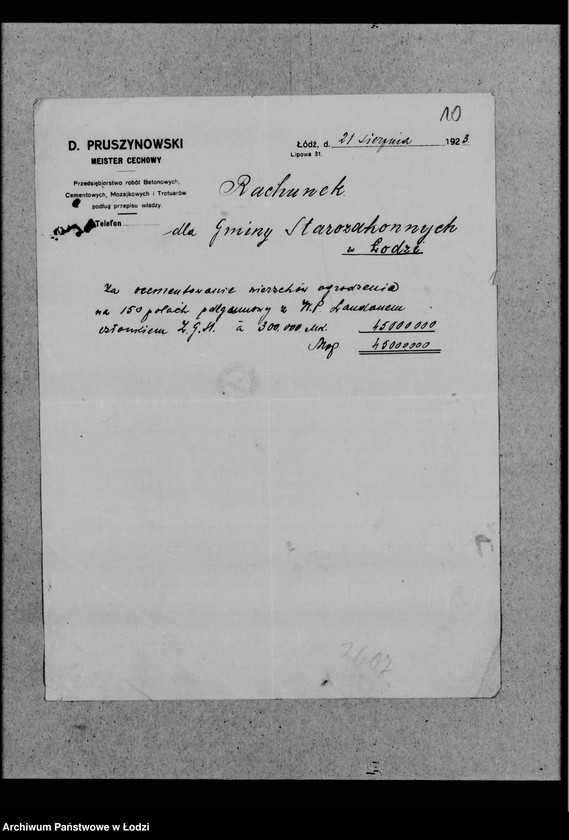 10
D. PRUSZYNOWSKI
MEISTER CECHOWY
Przedsiębiorstwo robót Betonowych,
Cementowych, Mozajkowych i Trotuarów
podług przepisu władzy.
Telefon
Łódź, d. 21 sierpnia 1923
Lipowa 31.
Rachunek
dla Gminy Starozakonnych
w Łodzi
Za ocementowanie wierzchów ogrodzenia
na 150 polach podług umowy z W.P. Landauem
członkiem Z.G.St. à 300,000 Mk. 45000000
Mkp 45000000
2607
Archiwum Państwowe w Łodzi